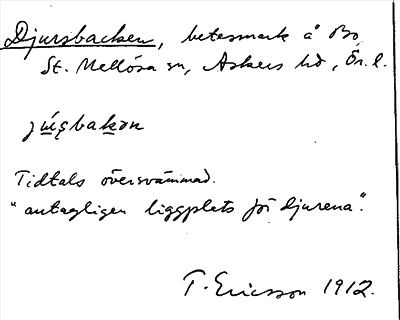 Djursbacken, betesmark å Bo
St. Mellösa sn, Askers hd, Ör. l.
júʂbakən
Tidtals översvämmad.
"antagligen liggplats för djurena".
T. Ericsson 1912.